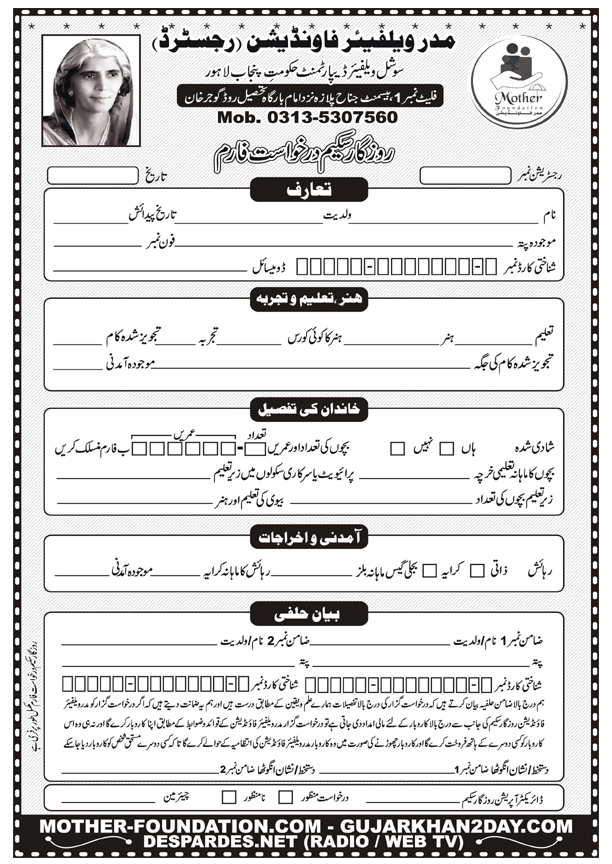 مدر ویلفیئر فاونڈیشن (رجسٹرڈ)
سوشل ویلفیئر ڈیپارٹمنٹ حکومت پنجاب لاہور
فلیٹ نمبر 1، بیسمنٹ جناح پلازہ نزد امام بارگاہ تحصیل روڈ گوجر خان
Mob. 0313-5307560
Mother
Foundation
مدر فاؤنڈیشن
روزگار سکیم درخواست فارم
رجسٹریشن نمبر تاریخ
تعارف
نام ولدیت تاریخ پیدائش
موجودہ پتہ فون نمبر
شناختی کارڈ نمبر ڈومیسائل
ہنر، تعلیم و تجربہ
تعلیم ہنر ہنر کا کوئی کورس تجربہ تجویز شدہ کام
تجویز شدہ کام کی جگہ موجودہ آمدنی
خاندان کی تفصیل
شادی شدہ ہاں نہیں بچوں کی تعداد اور عمریں تعداد عمریں ب فارم منسلک کریں
بچوں کا ماہانہ تعلیمی خرچہ پرائیویٹ یا سرکاری سکولوں میں زیر تعلیم
زیر تعلیم بچوں کی تعداد بیوی کی تعلیم اور ہنر
آمدنی و اخراجات
رہائش ذاتی کرایہ بجلی گیس ماہانہ بلز رہائش کا ماہانہ کرایہ موجودہ آمدنی
بیان حلفی
ضامن نمبر 1 نام/ولدیت ضامن نمبر 2 نام/ولدیت
پتہ پتہ
شناختی کارڈ نمبر شناختی کارڈ نمبر
ہم درج بالا ضامن حلفیہ بیان کرتے ہیں کہ درخواست گزار کی درج بالا تفصیلات ہمارے علم و یقین کے مطابق درست ہیں اور ہم یہ ضمانت دیتے ہیں کہ اگر درخواست گزار کو مدر ویلفیئر
فاؤنڈیشن روزگار سکیم کی جانب سے درج بالا کاروبار کے لئے مالی امداد دی جاتی ہے تو درخواست گزار مدر ویلفیئر فاؤنڈیشن کے قواعد و ضوابط کے مطابق اپنا کاروبار کرے گا اور نہ ہی وہ اس
کاروبار کو کسی دوسرے کے ہاتھ فروخت کرے گا اور کاروبار چھوڑنے کی صورت میں وہ کاروبار مدر ویلفیئر فاؤنڈیشن کی انتظامیہ کے حوالے کرے گا تاکہ کسی دوسرے مستحق شخص کو کاروبار دیا جا سکے
دستخط/نشان انگوٹھا ضامن نمبر 1 دستخط/نشان انگوٹھا ضامن نمبر 2
ڈائریکٹر آپریشن روزگار سکیم درخواست منظور نامنظور چیئرمین
روزگار سکیم درخواست فارم مکمل طور پر فری ہے
MOTHER-FOUNDATION.COM - GUJARKHAN2DAY.COM
DESPARDES.NET (RADIO / WEB TV)